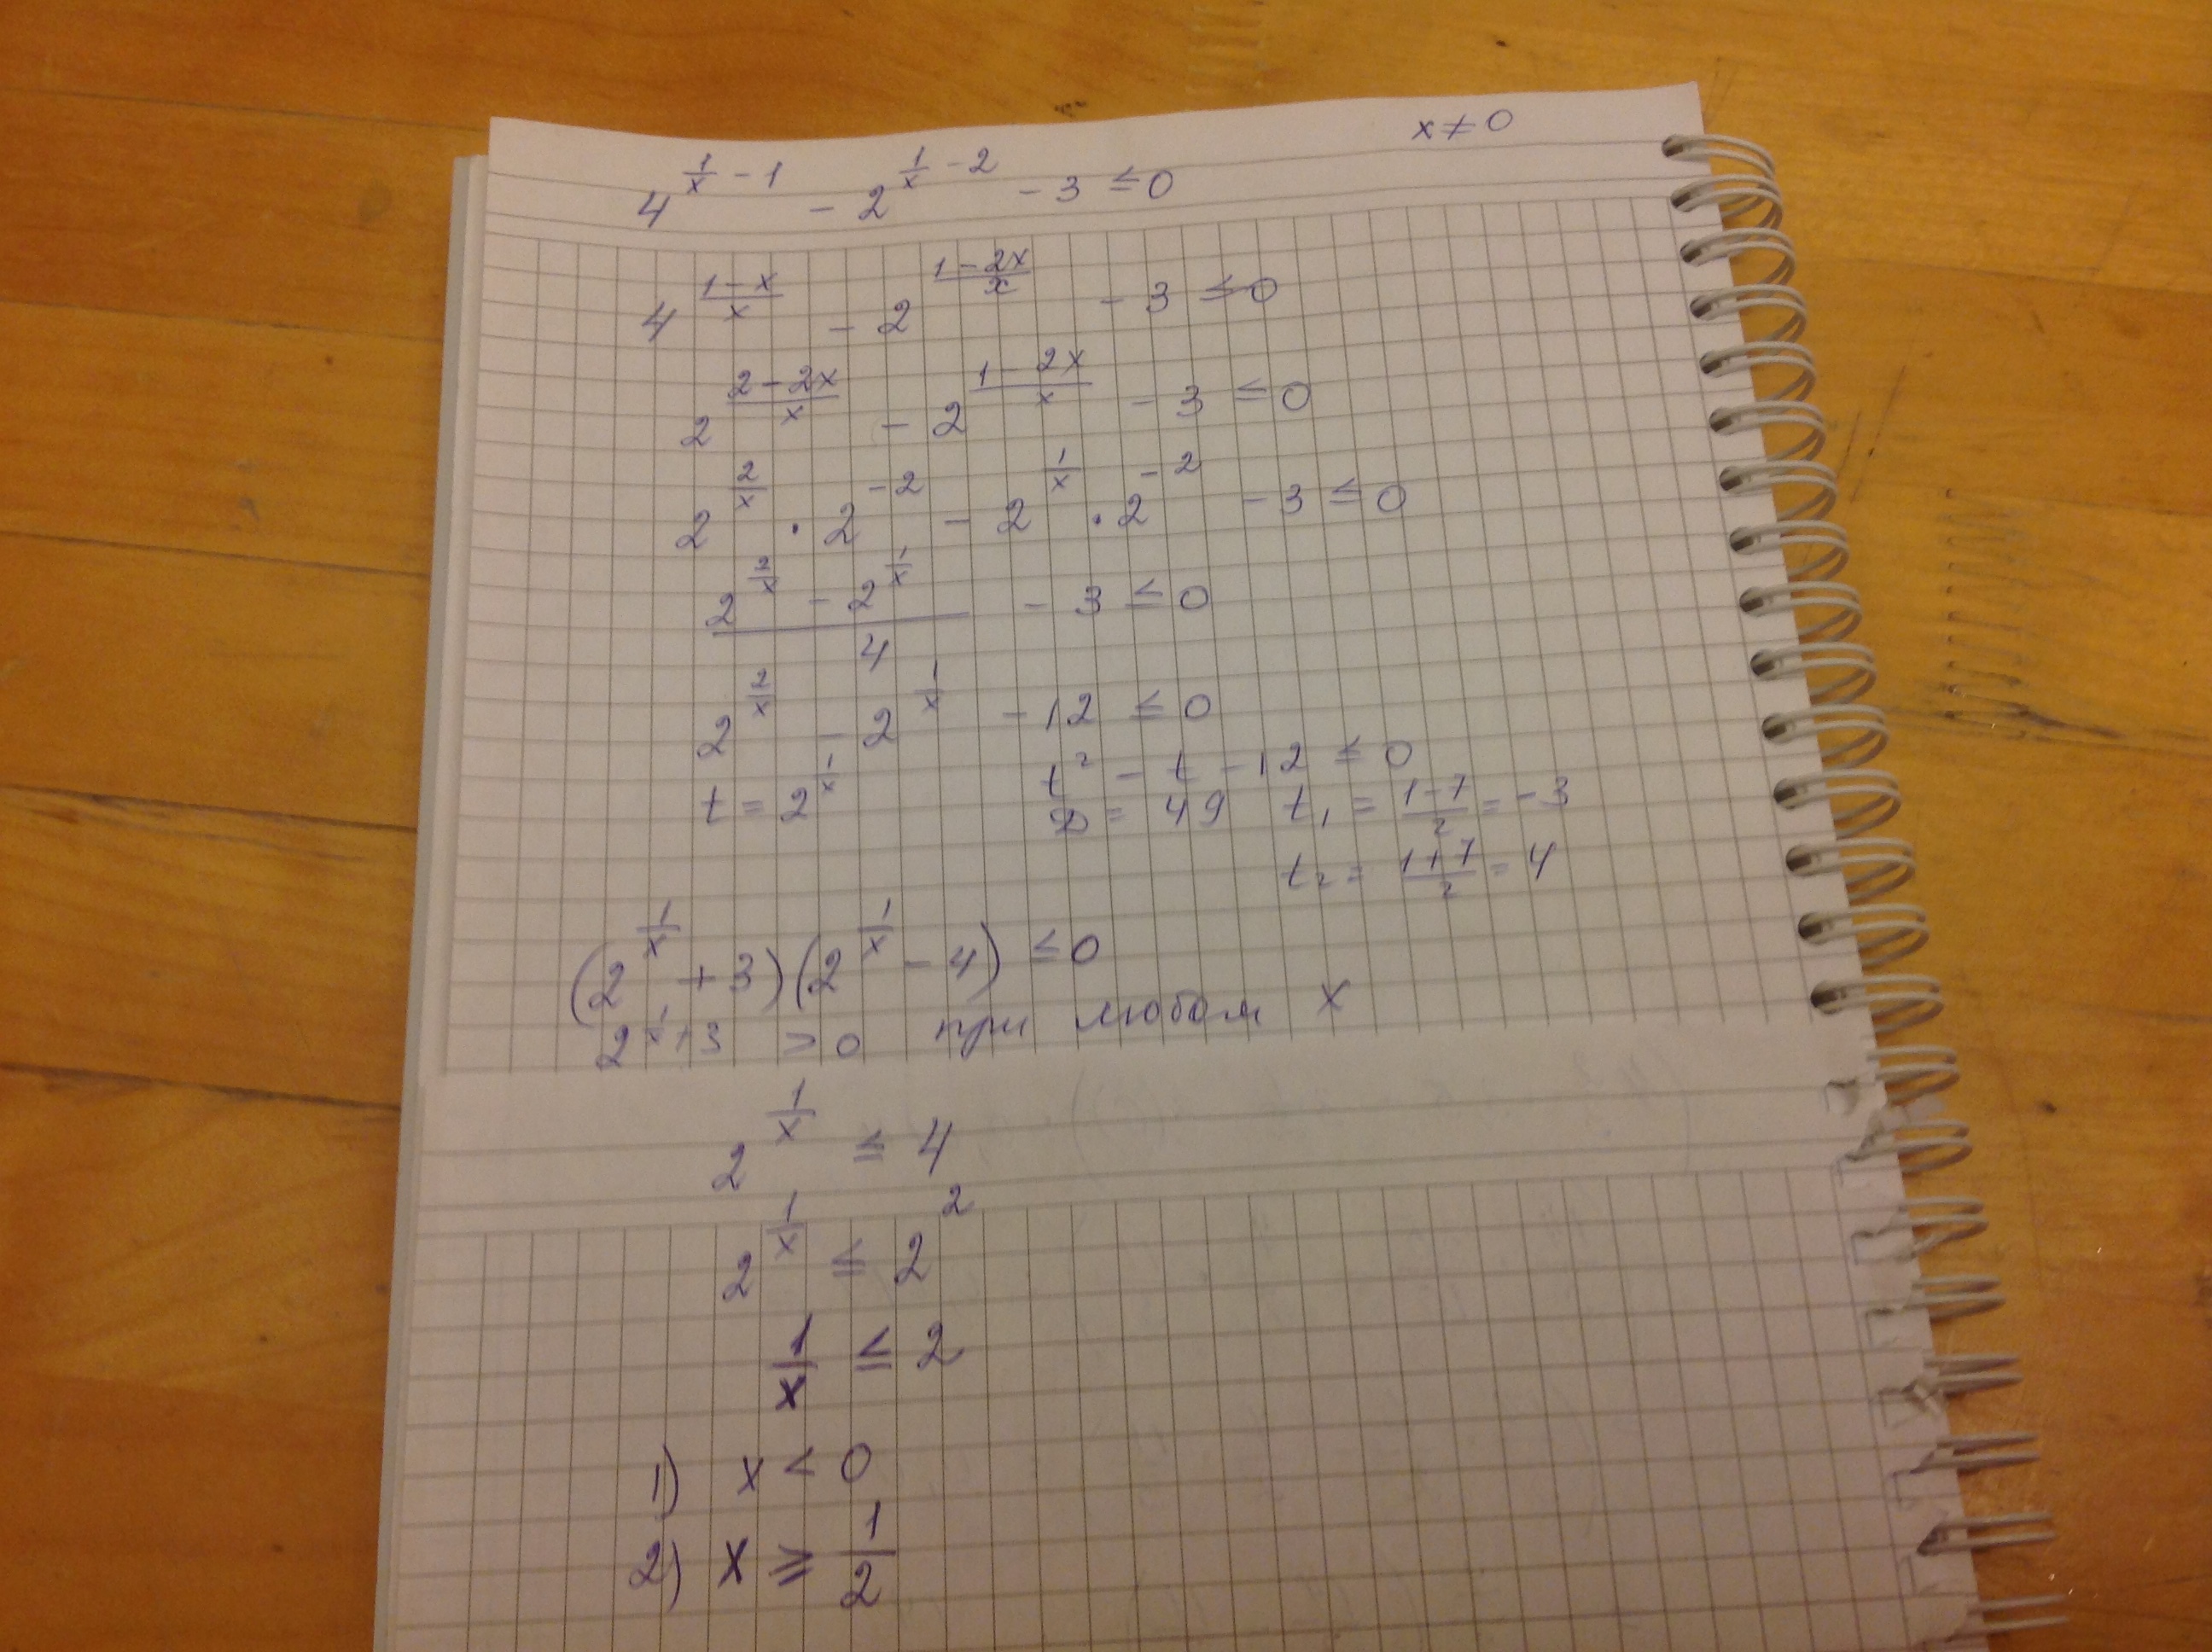 x ≠ 0
4^{\frac{1}{x} - 1} - 2^{\frac{1}{x} - 2} - 3 ≤ 0
4^{\frac{1-x}{x}} - 2^{\frac{1-2x}{x}} - 3 ≤ 0
2^{\frac{2-2x}{x}} - 2^{\frac{1-2x}{x}} - 3 ≤ 0
2^{\frac{2}{x}} · 2^{-2} - 2^{\frac{1}{x}} · 2^{-2} - 3 ≤ 0
\frac{2^{\frac{2}{x}} - 2^{\frac{1}{x}}}{4} - 3 ≤ 0
2^{\frac{2}{x}} - 2^{\frac{1}{x}} - 12 ≤ 0
t = 2^{\frac{1}{x}} t^2 - t - 12 ≤ 0
D = 49 t_1 = \frac{1-7}{2} = -3
t_2 = \frac{1+7}{2} = 4
(2^{\frac{1}{x}} + 3)(2^{\frac{1}{x}} - 4) ≤ 0
2^{\frac{1}{x}} + 3 > 0 при любом x
2^{\frac{1}{x}} ≤ 4
2^{\frac{1}{x}} ≤ 2^2
\frac{1}{x} ≤ 2
1) x < 0
2) x ≥ \frac{1}{2}